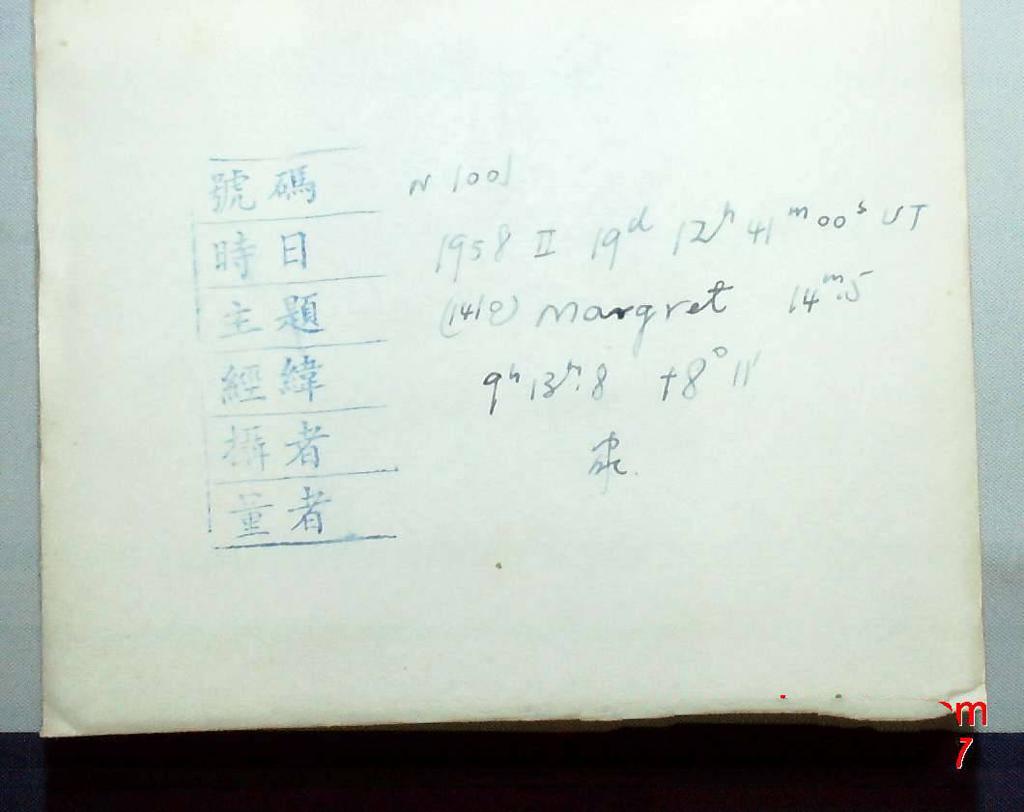 號碼 N 1001
時日 1958 II 19ᵈ 12ʰ 41ᵐ 00ˢ UT
主題 (1410) Margret 14ᵐ.5
經緯 9ʰ 13ʰ.8 +8° 11'
攝者
量者
om
7